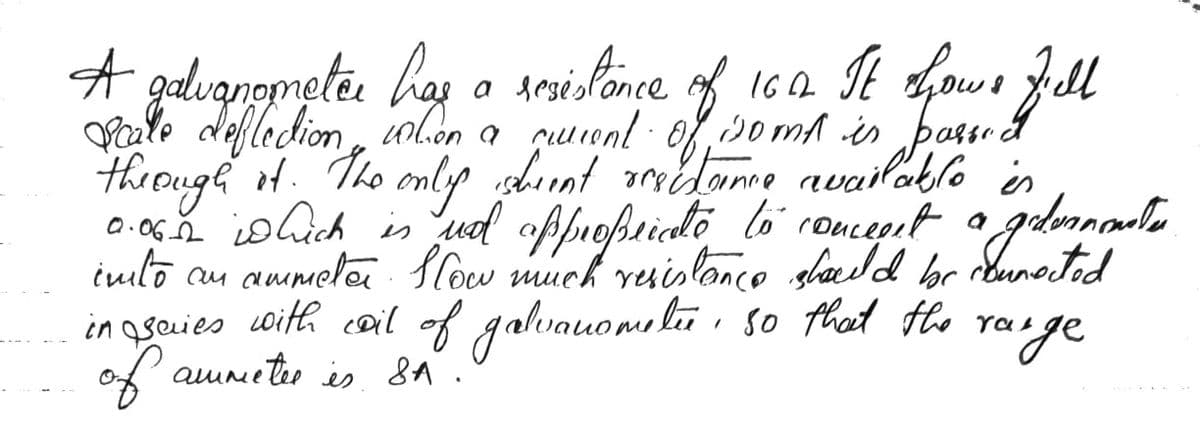 A galvanometer has a resistance of 16Ω It shows full
scale deflection, when a current of 20mA is passed
through it. The only shunt resistance available is
0.06Ω which is not appropriate to convert a galvanometer
into an ammeter. How much resistance should be connected
in series with coil of galvanometer, so that the range
of ammeter is 8A.